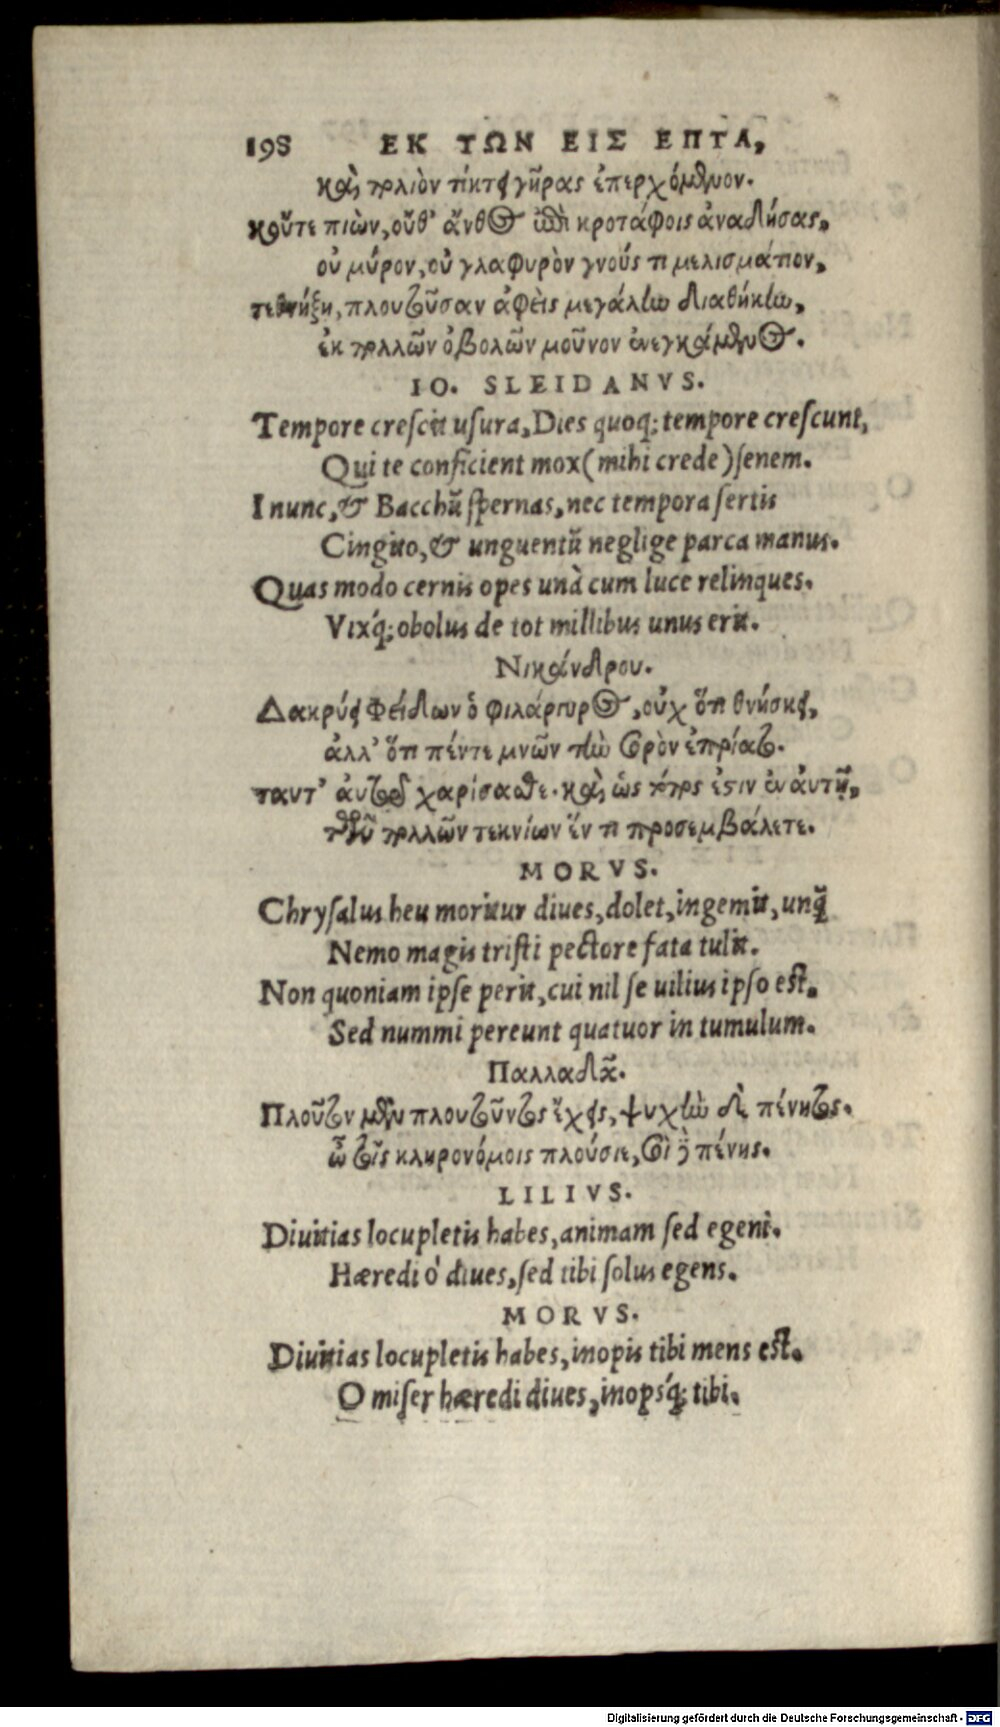 198 ΕΚ ΤΩΝ ΕΙΣ ΕΠΤΑ,
καὶ πολιὸν τίκτει γῆρας ἐπερχόμενον.
κοὔτε πιὼν, οὔθ' ἄνθος ἐπὶ κροτάφοις ἀναδήσας,
οὐ μύρον, οὐ γλαφυρὸν γνούς τι μελισμάτιον,
τεθνήξῃ, πλουτοῦσαν ἀφεὶς μεγάλην διαθήκην,
ἐκ πολλῶν ὀβολῶν μοῦνον ἐνεγκάμενος.
IO. SLEIDANVS.
Tempore crescit usura, Dies quoq; tempore crescunt,
Qui te conficient mox (mihi crede) senem.
I nunc, & Bacchũ spernas, nec tempora sertis
Cingito, & unguentũ neglige parca manus.
Quas modo cernis opes unà cum luce relinques.
Vixq́; obolus de tot millibus unus erit.
Νικάνδρου.
Δακρύει Φείδων ὁ φιλάργυρος, οὐχ ὅτι θνήσκει,
ἀλλ' ὅτι πέντε μνῶν τὴν σορὸν ἐπρίατο.
ταυτ' αὐτῷ χαρίσασθε. καὶ ὡς τόπος ἐστιν ἐν αὐτῇ,
τῶν πολλῶν τεκνίων ἕν τι προσεμβάλετε.
MORVS.
Chrysalus heu moritur diues, dolet, ingemit, unq̃
Nemo magis tristi pectore fata tulit.
Non quoniam ipse perit, cui nil se uilius ipso est.
Sed nummi pereunt quatuor in tumulum.
Παλλαδᾶ.
Πλοῦτον μὲν πλουτοῦντος ἔχεις, ψυχὴν δὲ πένητος.
ὦ τοῖς κληρονόμοις πλούσιε, σοὶ δὲ πένης.
LILIVS.
Diuitias locupletis habes, animam sed egeni.
Hæredi ô diues, sed tibi solus egens.
MORVS.
Diuitias locupletis habes, inopis tibi mens est.
O miser hæredi diues, inopsq́; tibi.
Digitalisierung gefördert durch die Deutsche Forschungsgemeinschaft - DFG